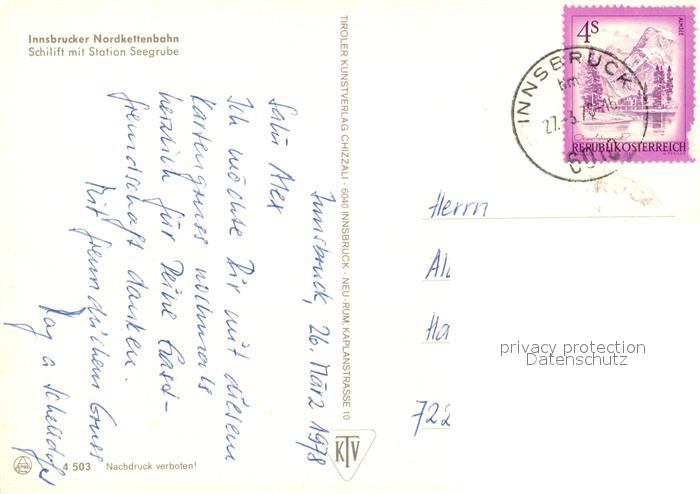 Innsbrucker Nordkettenbahn
Schilift mit Station Seegrube
Innsbruck, 26. März 1978
Salü Alex
Ich möchte Dir mit diesem
Kartengruss nochmals
herzlich für Deine Gast-
freundschaft danken.
Mit freundlichem Gruss
4 503 Nachdruck verboten!
TIROLER KUNSTVERLAG CHIZZALI · 6040 INNSBRUCK - NEU-RUM, KAPLANSTRASSE 10
KTV
4S
ALMSEE
REPUBLIK ÖSTERREICH
INNSBRUCK
6010
Herrn
Al
Ha
722
privacy protection
Datenschutz